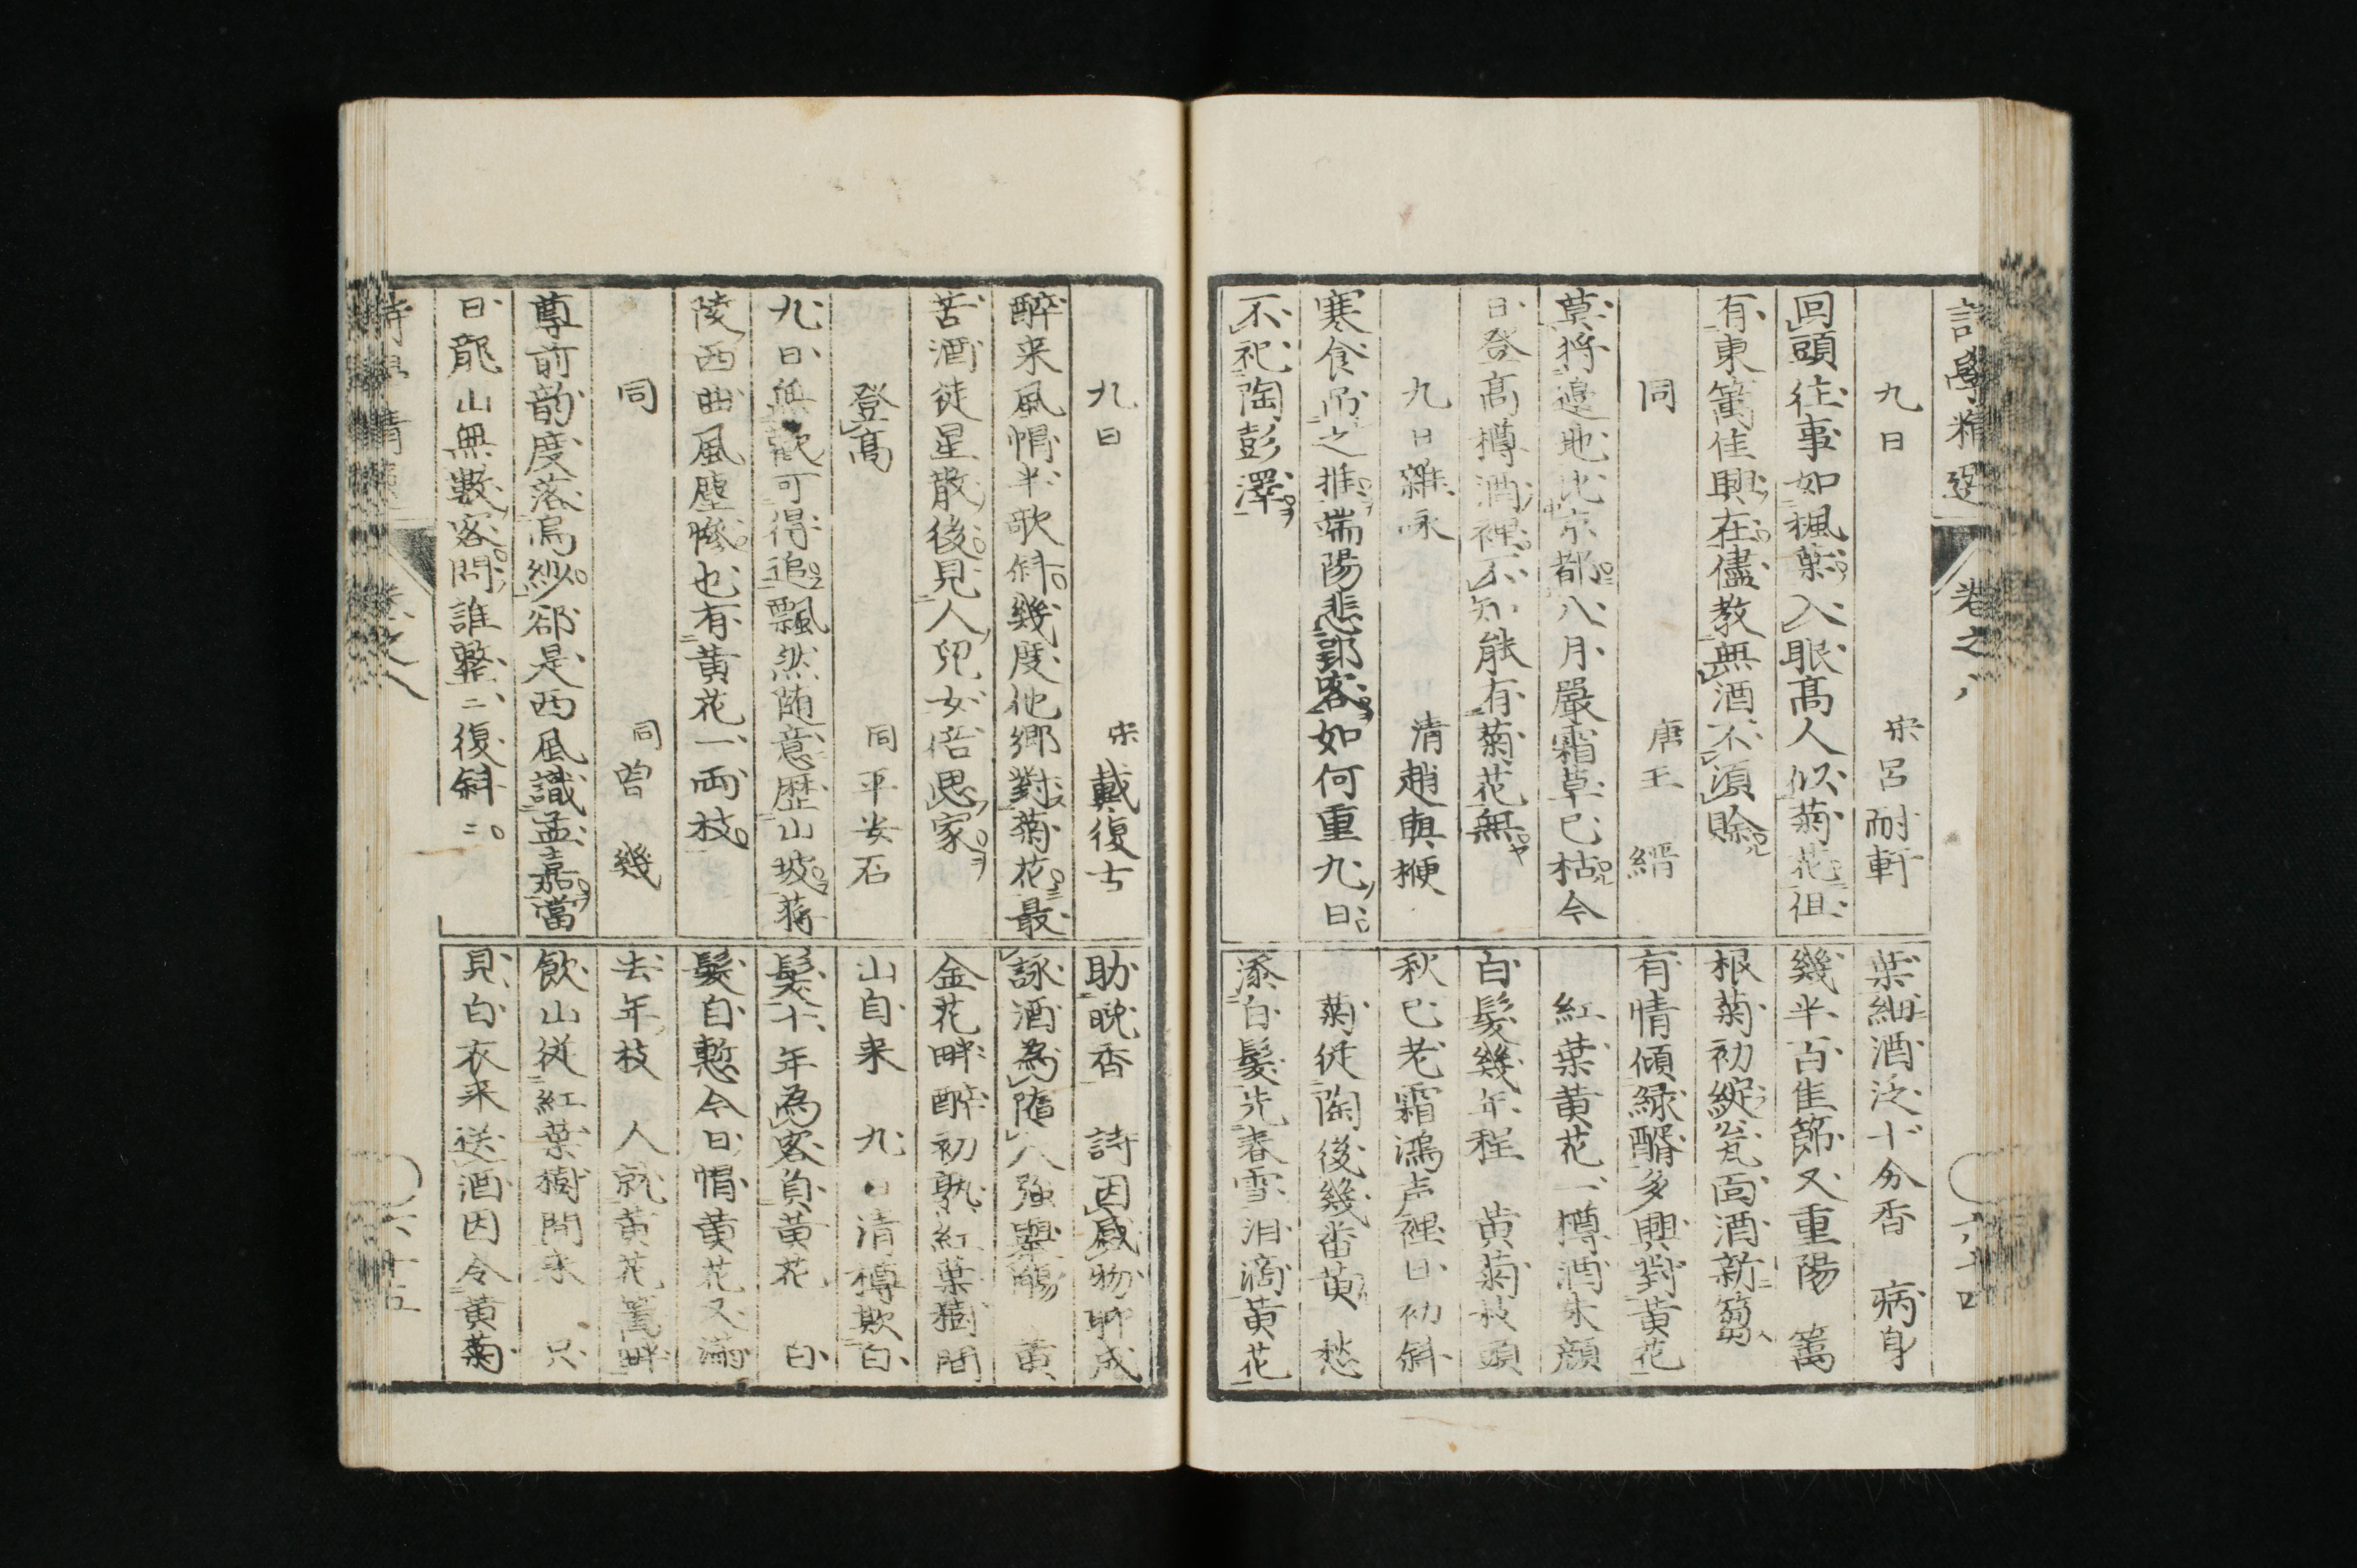 詩學精選 卷之八 六十四
九日 宋呂耐軒
回頭往事如楓葉入眼髙人似菊花但
有東篱佳興在儘教無酒不湏賖
同 唐王縉
莫将邉地比京都八月嚴霜草已枯今
日登髙樽酒裡不知能有菊花無
九日雜咏 清趙輿楩
寒食吊之推端陽悲郢客如何重九日
不祀陶彭澤
葉細酒泛十分香 病身
幾半百隹節又重陽 篱
根菊初綻瓮面酒新篘
有情傾緑醑多興對黄花
紅葉黄花一樽酒朱顔
白髪幾年程 黄菊枝頭
秋已老霜鴻声裡日初斜
菊従陶後幾番黄 愁
添白髪先春雪泪滴黄花
九日 宋戴復古
醉来風帽半欹斜幾度他鄉對菊花最
苦酒徒星散後見人兒女倍思家
登髙 同平安石
九日無歡可得追飄然随意歴山坡蒋
陵西曲風塵惨也有黄花一両枝
同 同曽幾
尊前韵度落烏紗郤是西風識孟嘉當
日龍山無數客問誰整二復斜二
助晩香 詩因感物聊成
詠酒為隨人強舉觴 黄
金花畔醉初熟紅葉樹間
山自来 九日清樽欺白
髪十年為客負黄花 白
髪自慙今日帽黄花又滿
去年枝 人就黄花篱畔
飲山従紅葉樹間来 只
見白衣来送酒因令黄菊
卷之八